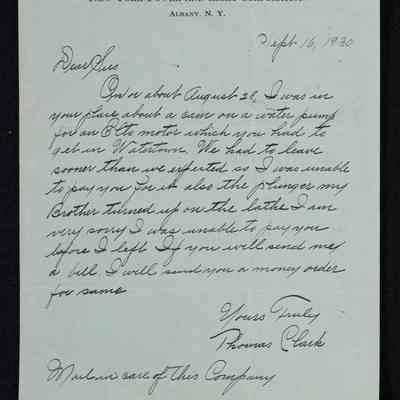 New York Power and Light Corporation
Albany, N. Y.
Sept 16, 1930
Dear Sirs
On or about August 28, I was in
your place about a cam on a water pump
for an Elto motor which you had to
get in Watertown. We had to leave
sooner than we expected so I was unable
to pay you for it also the plunger my
Brother turned up on the lathe I am
very sorry I was unable to pay you
before I left If you will send me
a bill I will send you a money order
for same
Yours Truly
Thomas Clark
Mail in care of this Company